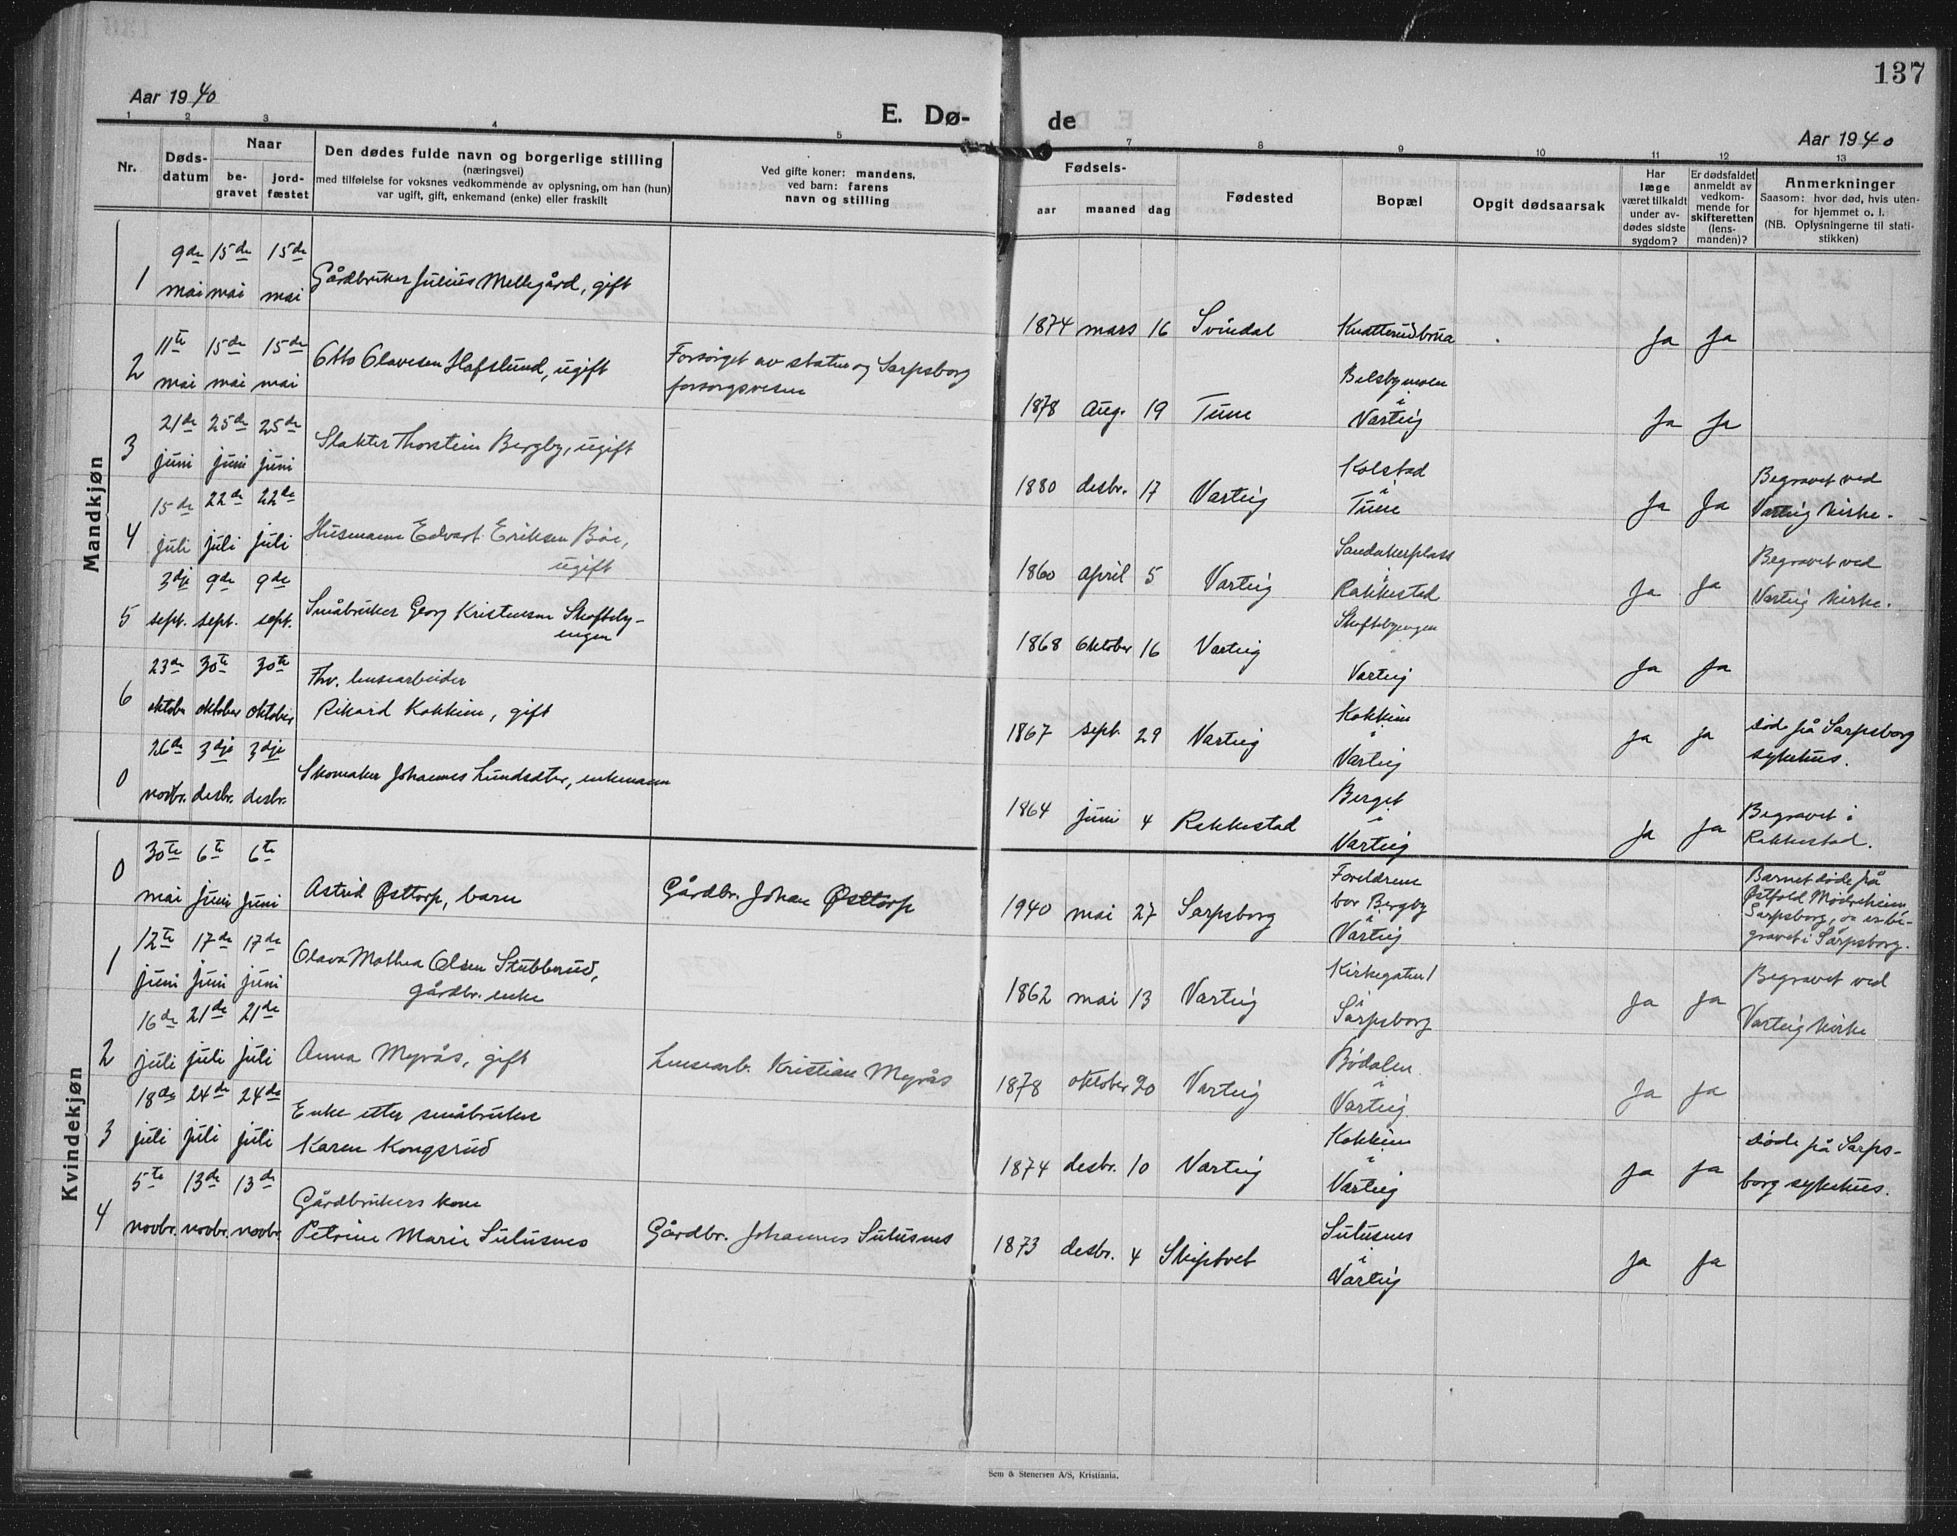 137
Aar 1940
E. Dø-
de
Aar 1940
1 2 3 4 5 7 8 9 10 11 12 13
Nr.
Døds-
datum
Naar
be-
gravet
jord-
fæstet
Den dødes fulde navn og borgerlige stilling
(næringsvei)
med tilføielse for voksnes vedkommende av oplysning, om han (hun)
var ugift, gift, enkemand (enke) eller fraskilt
Ved gifte koner: mandens,
ved barn: farens
navn og stilling
Fødsels-
aar maaned dag
Fødested
Bopæl
Opgit dødsaarsak
Har
læge
været tilkaldt
under av-
dødes sidste
sygdom?
Er dødsfaldet
anmeldt av
vedkom-
mende for
skifteretten
(lens-
manden)?
Anmerkninger
Saasom: hvor død, hvis uten-
for hjemmet o. l.
(NB. Oplysningerne til stati-
stikken)
Mandkjøn
1 9de mai 15de mai 15de mai
Gårdbruker Julius Mellegård, gift
1874 mars 16 Svindal Knatterudbrua Ja Ja
2 11te mai 15de mai 15de mai
Otto Olavesen Hafslund, ugift
Forsørget av staten og Sarpsborg
forsorgsvesen
1878 Aug. 19 Tune
i
Varteig
Ja Ja
3 21de juni 25de juni 25de juni
Slakter Thorstein Bergby, ugift
1880 desbr. 17 Varteig
Kolstad
i
Tune
Ja Ja
Begravet ved
Varteig kirke.
4 15de juli 22de juli 22de juli
Husmann Edvart Eriksen Bøe,
ugift
1860 april 5 Varteig
Sandakerplass
i
Rakkestad
Ja Ja
Begravet ved
Varteig kirke.
5 3dje sept. 9de sept. 9de sept.
Småbruker Georg Kristensen Skofteby-
engen
1868 Oktober 16 Varteig
Skoftebyengen
Varteig
Ja Ja
6 23de oktober 30te oktober 30te oktober
Fhv. lensearbeider
Rikard Kokkim, gift
1867 sept. 29 Varteig
Kokkim
i
Varteig
Ja Ja
Døde på Sarpsborg
sykehus.
0 26de novbr. 3dje desbr. 3dje desbr.
Skomaker Johannes Lundsæter, enkemann
1864 juni 4 Rakkestad
Berget
i
Varteig
Ja Ja
Begravet i
Rakkestad.
Kvindekjøn
0 30te mai 6te Juni 6te Juni
Astrid Østtorp, barn
Gårdbr. Johan Østtorp
1940 mai 27 Sarpsborg
Foreldrene
bor Bergby
i
Varteig
Barnet døde på
Østfold Mødreheim
Sarpsborg, og er be-
gravet i Sarpsborg.
1 12te juni 17de juni 17de juni
Olava Mathea Olsen Stubberud,
gårdbr. enke
1862 mai 13 Varteig
Kirkegaten 1
i
Sarpsborg
Ja Ja
Begravet ved
Varteig kirke
2 16de juli 21de juli 21de juli
Anna Myrås, gift
Lensearb. Kristian Myrås
1878 oktober 20 Varteig
Bødalen
i
Varteig
Ja Ja
3 18de juli 24de juli 24de juli
Enke etter småbruker
Karen Kongsrud
1874 desbr. 10 Varteig
Kokkim
i
Varteig
Ja Ja
Døde på Sarps-
borg sykehus.
4 5te novbr. 13de novbr. 13de novbr.
Gårdbrukers kone
Petrine Marie Sulusnes
Gårdbr. Johannes Sulusnes
1873 desbr. 4 Skiptvet
Sulusnes
i
Varteig
Ja Ja
Sem & Stenersen A/S, Kristiania.